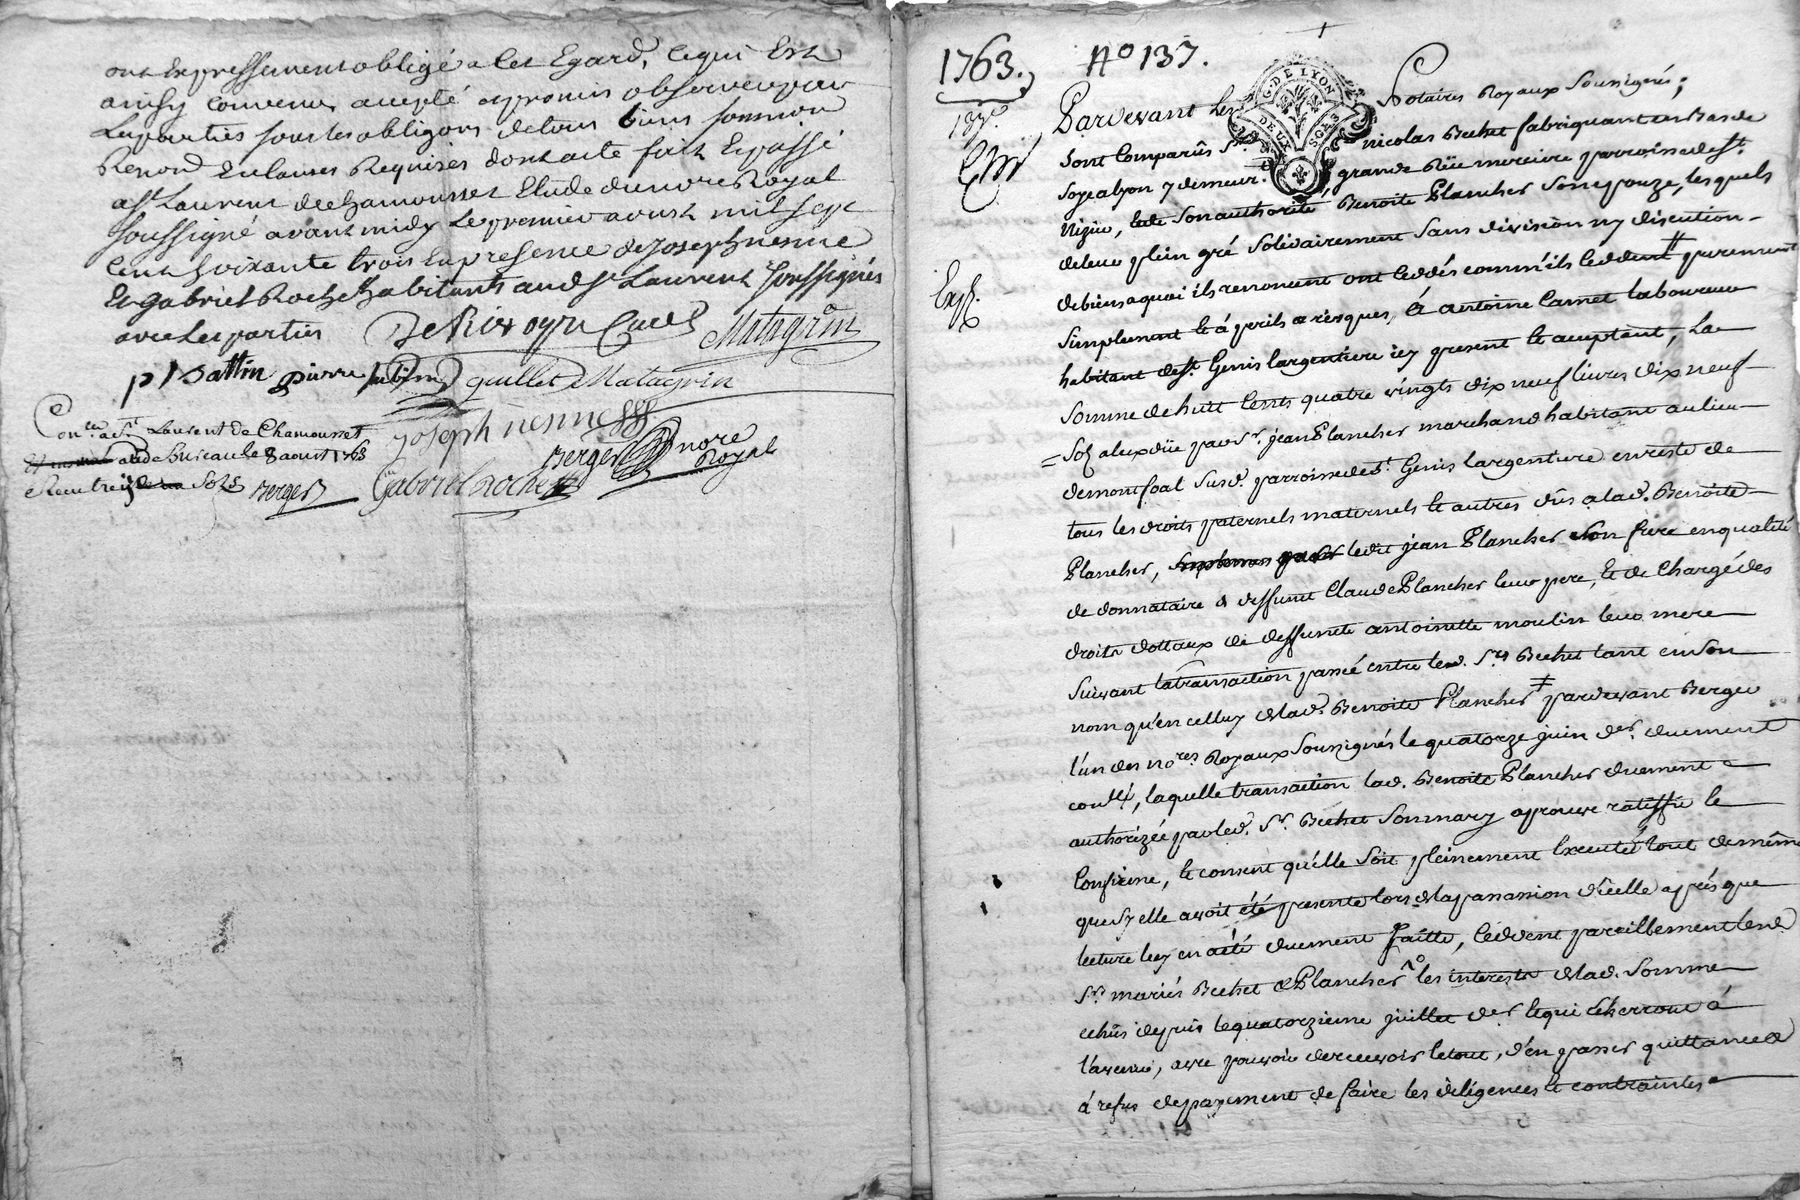 ont expressement obligé a cet Egard, ce qui Est
ainsy convenu accepté et promis observer par
les parties sous les obligons de tous biens soumion
Renond Et clauses Requises dont acte fait Et passé
a St Laurent de chamousset Etude du nore Royal
soussigné avant midy le premier aoust mil sept
Cent soixante trois En presence de joseph nesme
Et gabriel Roche habitants aud St Laurent soussignés
avec les parties
Matagrin
p Battin pierre quillet Matagrin
Conlle a St Laurent de Chamousset
au de bureau le 8 aoust 1763
joseph nesme
Berger nore Royal
Recu treize Sols Berger
Gabriel roche
1763. No 137.
G. DE LYON
DEUX SOLS
Pardevant Les Notaires Royaux Soussignés;
Sont Comparûs Sr nicolas Bechet fabriquant en Bas de
Soye a lyon y demeurt grande Rüe merciere parroisse de St
Nizier, et de son authorité Benoite Plancher son epouze, lesquels
de leur plein gré Solidairement Sans division ny discution
de biens a quoi ils renoncent ont ceddés comm'ils ceddent purement
Exp.
Simplement et á perils et risques, á antoine Carnet laboureur
habitant de St Genis largentiere icy present et acceptant, La
Somme de huit Cents quatre vingts dix neuf livres dix neuf
Sols a eux düe par Sr. jean Plancher marchand habitant au lieu
de montfoal Susd. parroisse de St Genis largentiere en reste de
tous les droits paternels maternels et autres dûs a lad. Benoite
Plancher, par ledit jean Plancher son frere en qualité
de donnataire de deffunt Claude Plancher leur pere, et de Chargé des
droits dottaux de deffunte antoinette moulin leur mere
Suivant la transaction passée entre led. Sr Bechet tant en son
nom qu'en celluy de lad. Benoite Plancher ‡ pardevant Berger
l'un des nores Royaux Soussignés le quatorze juin der. duement
conllé, laquelle transaction lad. Benoite Plancher duement
authorizée par led. Sr. Bechet Son mary aprouve ratiffie et
Confirme, et consent qu'elle Soit pleinement Executée tout de même
que sy elle avoit été presente lors de la passassion d'icelle aprés que
lecture luy en a été duement faitte, Ceddent pareillement lesd
Srs mariés Bechet et Plancher les interests de lad. Somme
echûs depuis le quatorzieme juillet der et qui écherront á
l'avenir, avec pouvoir de recevoir le tout, d'en passer quittance &
á refus de payement de faire les diligences et contraintes